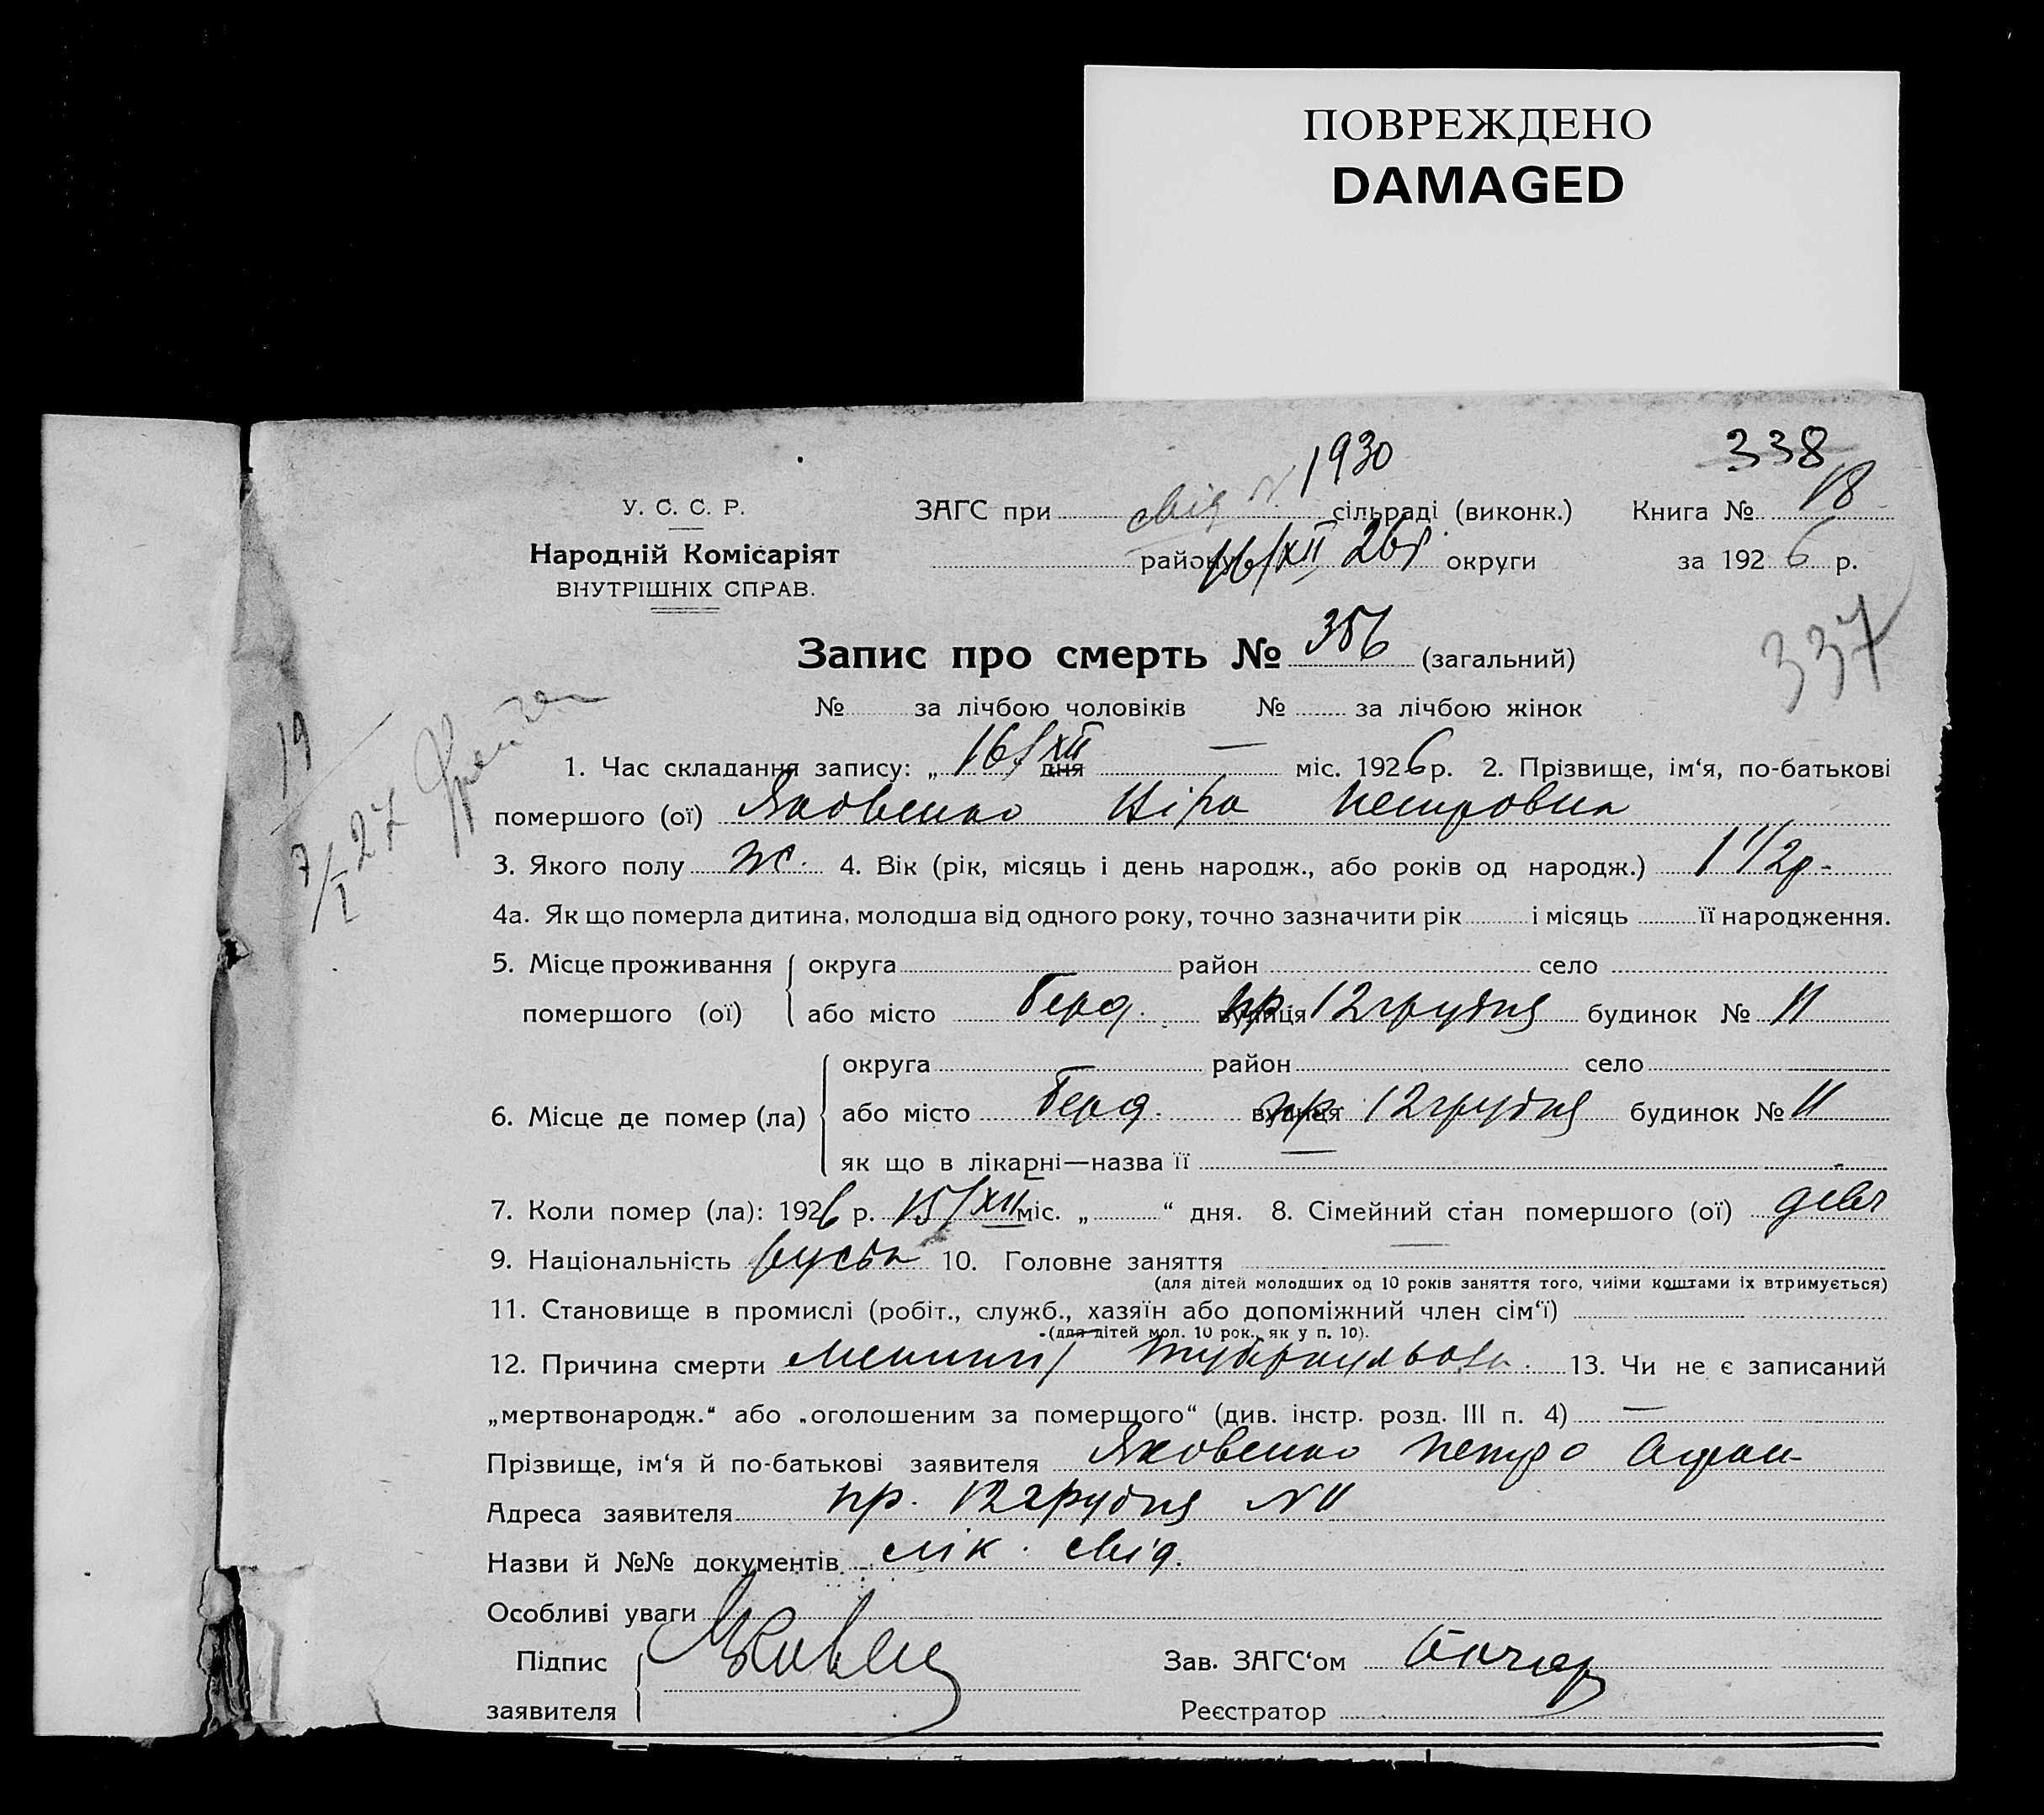 ПОВРЕЖДЕНО
DAMAGED
338
У. С. С. Р.
Народній Комісаріят
ВНУТРІШНІХ СПРАВ.
ЗАГС при свід N. 1930 сільраді (виконк.)
району 16/XII 26р. округи
Книга № 18
за 1926 р.
337
Запис про смерть № 356 (загальний)
№ за лічбою чоловіків № за лічбою жінок
19
7/I 27
1. Час складання запису: „ 16/XII дня — міс. 1926 р. 2. Прізвище, ім‘я, по-батькові
помершого (ої) Яковенко Віра Петровна
3. Якого полу ж. 4. Вік (рік, місяць і день народж., або років од народж.) 1 1/2 р -
4а. Як що померла дитина, молодша від одного року, точно зазначити рік і місяць її народження.
5. Місце проживання помершого (ої)
округа район село
або місто Берд. вулиця пр. 12 грудня будинок № 11
6. Місце де помер (ла)
округа район село
або місто Берд. вулиця пр. 12 грудня будинок № 11
як що в лікарні—назва її —
7. Коли помер (ла): 1926 р. 15/XII міс. „ “ дня. 8. Сімейний стан помершого (ої)
9. Національність 10. Головне заняття —
(для дітей молодших од 10 років заняття того, чиїми коштами їх втримується)
11. Становище в промислі (робіт., служб., хазяїн або допоміжний член сім‘ї) —
(для дітей мол. 10 рок., як у п. 10).
12. Причина смерти 13. Чи не є записаний
„мертвонародж.“ або „оголошеним за помершого“ (див. інстр. розд. III п. 4) —
Прізвище, ім‘я й по-батькові заявителя Яковенко Петро Афан-
Адреса заявителя пр. 12 грудня N 11
Назви й №№ документів лік. свід.
Особливі уваги
Підпис заявителя
Зав. ЗАГС‘ом
Реєстратор